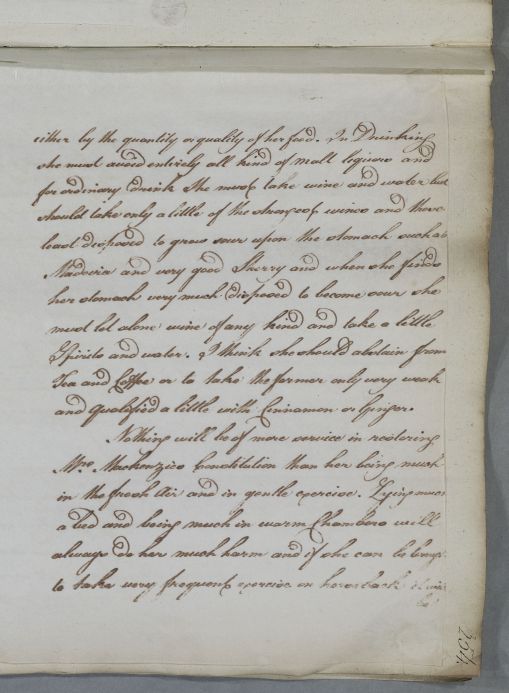 either by the quantity or quality of her food. In Drinking
she must avoid entirely all kind of malt liquors and
for ordinary drink she must take wine and water but
should take only a little of the strongest wines and those
least disposed to grow sour upon the stomach such as
Madeira and very good Sherry and when she finds
her stomach very much disposed to become sour she
must let alone wine of any kind and take a little
Spirits and water. I think she should abstain from
Tea and Coffee or to take the former only very weak
and qualified a little with Cinnamon or Ginger.
Nothing will be of more service in restoring
Mrs. Mackenzies Constitution than her being much
in the fresh Air and in gentle exercise. Lying much
a bed and being much in warm Chambers will
always do her much harm and if she can be brought
to take very frequent exercise on horseback it will
be
254